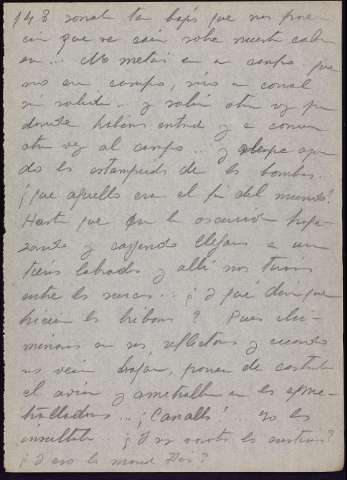 148 sonaban tan bajos que nos pare
cia que se caían sobre nuestra cabe
za... Me metía en un campo que
no era campo, era un corral
sin salida.. y salía otra vez por
donde había entrado y a correr
otra vez al campo... y siempre oyen
do los estampidos de las bombas.
¡Que aquello era el fin del mundo!
Hasta que en la oscuridad trope
zando y cayendo llegamos a una
tierra labrada y allí nos tiramos
entre los surcos... ¡Y qué dirá que
hicieron los bribones? Pues ilu-
minaron con sus reflectores y cuando
nos veían bajaban, ponían de costado
el avión y ametrallaban con las ame-
tralladoras... ¡Canallas!... yo les
insultaba ¡Y no
¿Y eso lo manda Dios?